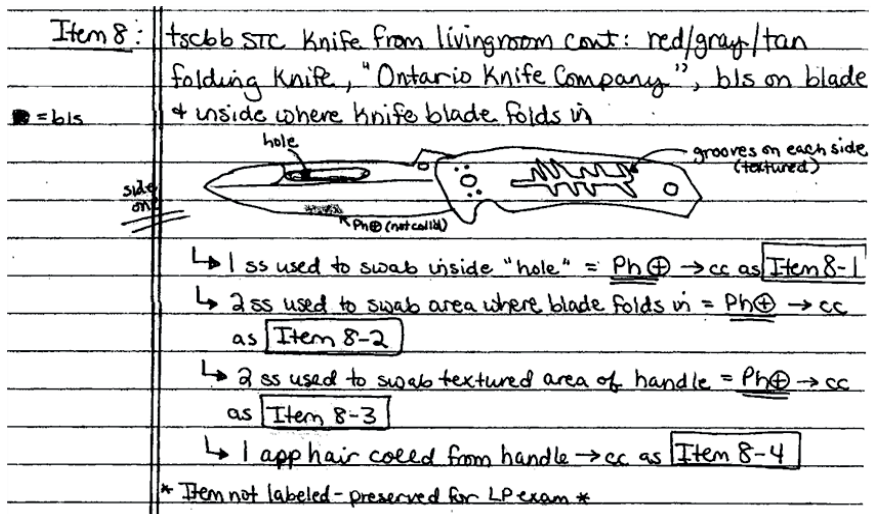 Item 8: tscbb STC Knife from livingroom cont: red/gray/tan
folding Knife, "Ontario Knife Company", bls on blade
= bls & inside where Knife blade folds in
hole
grooves on each side
(textured)
side
one
Ph⊕ (not coll'd)
↳ 1 ss used to swab inside "hole" = Ph⊕ → cc as Item 8-1
↳ 2 ss used to swab area where blade folds in = Ph⊕ → cc
as Item 8-2
↳ 2 ss used to swab textured area of handle = Ph⊕ → cc
as Item 8-3
↳ 1 app hair coll'd from handle → cc as Item 8-4
* Item not labeled - preserved for LP exam *